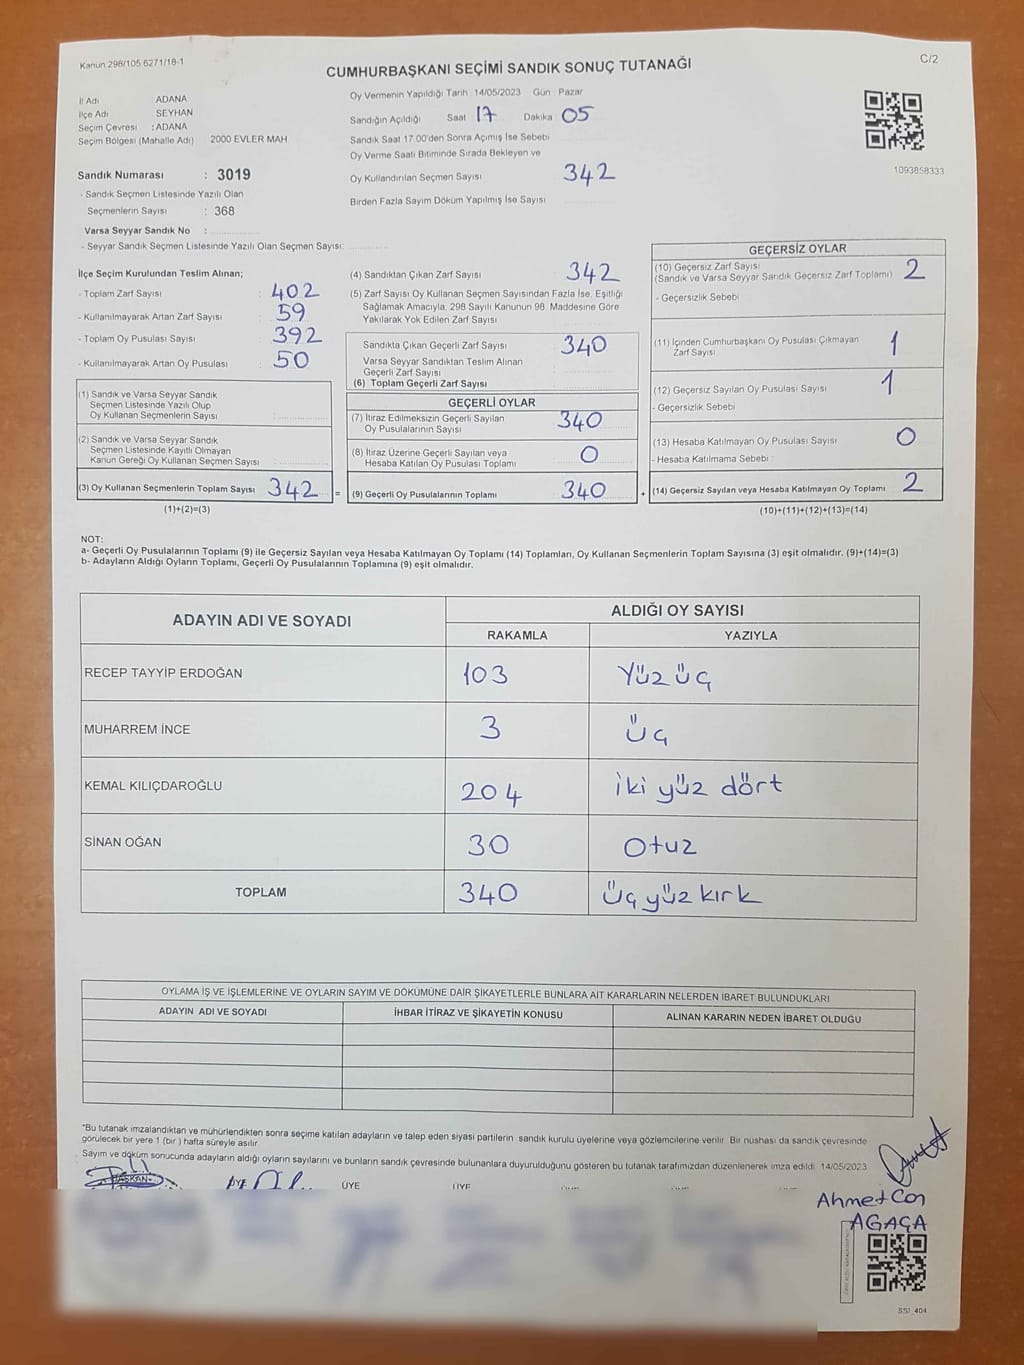 Kanun 298/105 6271/18-1
C/2
CUMHURBAŞKANI SEÇİMİ SANDIK SONUÇ TUTANAĞI
İl Adı ADANA
İlçe Adı SEYHAN
Seçim Çevresi : ADANA
Seçim Bölgesi (Mahalle Adı) 2000 EVLER MAH
Sandık Numarası : 3019
- Sandık Seçmen Listesinde Yazılı Olan
Seçmenlerin Sayısı : 368
Varsa Seyyar Sandık No :
- Seyyar Sandık Seçmen Listesinde Yazılı Olan Seçmen Sayısı:
Oy Vermenin Yapıldığı Tarih 14/05/2023 Gün Pazar
Sandığın Açıldığı Saat 17 Dakika 05
Sandık Saat 17:00'den Sonra Açımış İse Sebebi
Oy Verme Saati Bitiminde Sırada Bekleyen ve
Oy Kullandırılan Seçmen Sayısı 342
Birden Fazla Sayım Döküm Yapılmış İse Sayısı
1093858333
İlçe Seçim Kurulundan Teslim Alınan;
- Toplam Zarf Sayısı : 402
- Kullanılmayarak Artan Zarf Sayısı : 59
- Toplam Oy Pusulası Sayısı : 392
- Kullanılmayarak Artan Oy Pusulası : 50
(1) Sandık ve Varsa Seyyar Sandık
Seçmen Listesinde Yazılı Olup
Oy Kullanan Seçmenlerin Sayısı
(2) Sandık ve Varsa Seyyar Sandık
Seçmen Listesinde Kayıtlı Olmayan
Kanun Gereği Oy Kullanan Seçmen Sayısı
(3) Oy Kullanan Seçmenlerin Toplam Sayısı 342 =
(1)+(2)=(3)
(4) Sandıktan Çıkan Zarf Sayısı 342
(5) Zarf Sayısı Oy Kullanan Seçmen Sayısından Fazla İse, Eşitliği
Sağlamak Amacıyla, 298 Sayılı Kanunun 98. Maddesine Göre
Yakılarak Yok Edilen Zarf Sayısı
Sandıkta Çıkan Geçerli Zarf Sayısı 340
Varsa Seyyar Sandıktan Teslim Alınan
Geçerli Zarf Sayısı
(6) Toplam Geçerli Zarf Sayısı
GEÇERLİ OYLAR
(7) İtiraz Edilmeksizin Geçerli Sayılan
Oy Pusulalarının Sayısı 340
(8) İtiraz Üzerine Geçerli Sayılan veya
Hesaba Katılan Oy Pusulası Toplamı 0
(9) Geçerli Oy Pusulalarının Toplamı 340 +
GEÇERSİZ OYLAR
(10) Geçersiz Zarf Sayısı
(Sandık ve Varsa Seyyar Sandık Geçersiz Zarf Toplamı) 2
- Geçersizlik Sebebi
(11) İçinden Cumhurbaşkanı Oy Pusulası Çıkmayan
Zarf Sayısı 1
(12) Geçersiz Sayılan Oy Pusulası Sayısı 1
- Geçersizlik Sebebi
(13) Hesaba Katılmayan Oy Pusulası Sayısı 0
- Hesaba Katılmama Sebebi :
(14) Geçersiz Sayılan veya Hesaba Katılmayan Oy Toplamı 2
(10)+(11)+(12)+(13)=(14)
NOT:
a- Geçerli Oy Pusulalarının Toplamı (9) ile Geçersiz Sayılan veya Hesaba Katılmayan Oy Toplamı (14) Toplamları, Oy Kullanan Seçmenlerin Toplam Sayısına (3) eşit olmalıdır. (9)+(14)=(3)
b- Adayların Aldığı Oyların Toplamı, Geçerli Oy Pusulalarının Toplamına (9) eşit olmalıdır.
ADAYIN ADI VE SOYADI ALDIĞI OY SAYISI
RAKAMLA YAZIYLA
RECEP TAYYİP ERDOĞAN 103 Yüz üç
MUHARREM İNCE 3 üç
KEMAL KILIÇDAROĞLU 204 iki yüz dört
SİNAN OĞAN 30 Otuz
TOPLAM 340 üç yüz kırk
OYLAMA İŞ VE İŞLEMLERİNE VE OYLARIN SAYIM VE DÖKÜMÜNE DAİR ŞİKAYETLERLE BUNLARA AİT KARARLARIN NELERDEN İBARET BULUNDUKLARI
ADAYIN ADI VE SOYADI İHBAR İTİRAZ VE ŞİKAYETİN KONUSU ALINAN KARARIN NEDEN İBARET OLDUĞU
*Bu tutanak imzalandıktan ve mühürlendikten sonra seçime katılan adayların ve talep eden siyasi partilerin sandık kurulu üyelerine veya gözlemcilerine verilir. Bir nüshası da sandık çevresinde
görülecek bir yere 1 (bir ) hafta süreyle asılır.
Sayım ve döküm sonucunda adayların aldığı oyların sayılarını ve bunların sandık çevresinde bulunanlara duyurulduğunu gösteren bu tutanak tarafımızdan düzenlenerek imza edildi. 14/05/2023
BAŞKAN ÜYE ÜYE ÜYE
Ahmet Can
AGAÇA
SS1_404